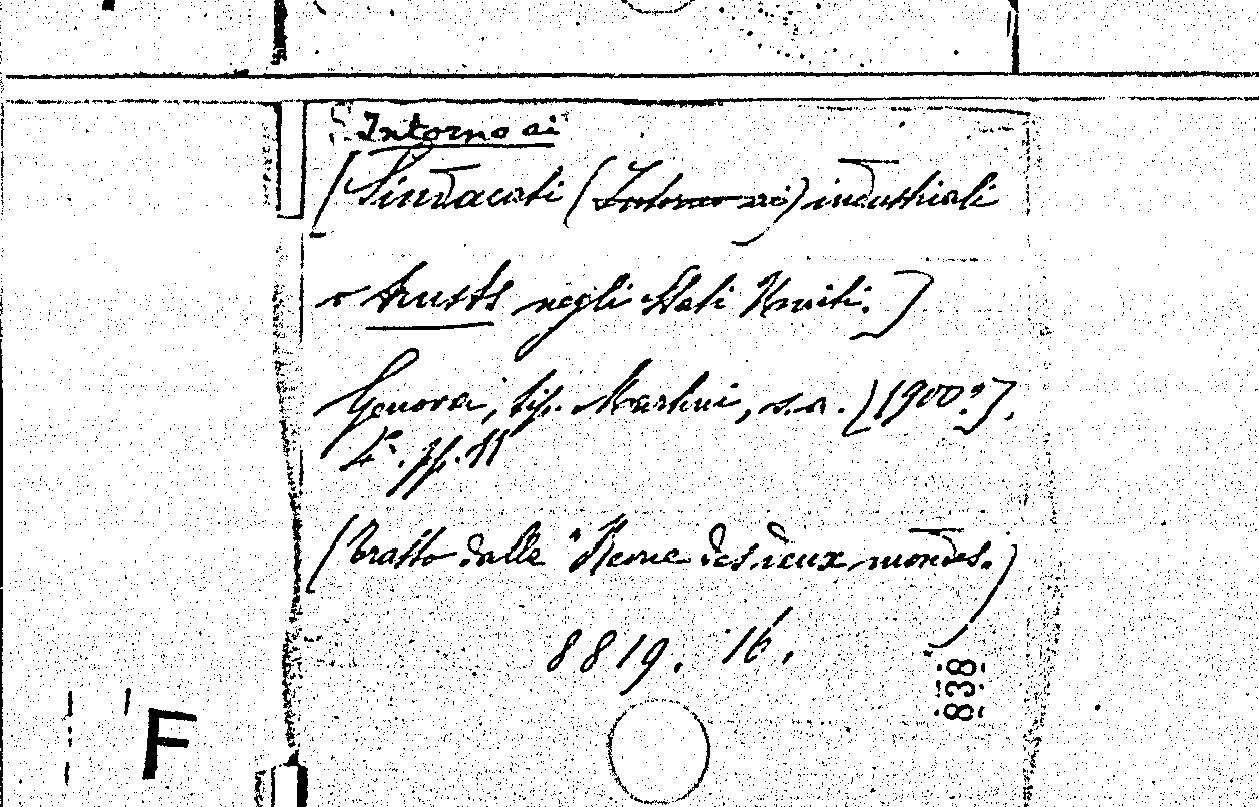 Intorno ai
[Sindacati (Intorno ai) industriali
o trusts negli Stati Uniti.]
Genova, tip. Martini, s.a. [1900?].
4°. pp. 11
(Tratto dalle "Revue des deux mondes.)
8819. 16.
838
F